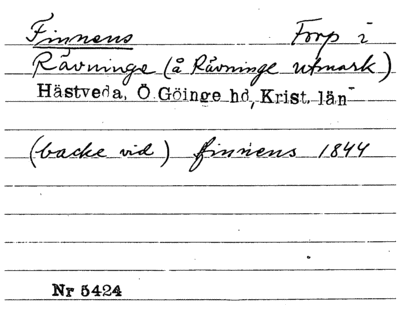 Finnens Torp i
Råvninge (å Råvninge utmark)
Hästveda, Ö. Göinge hd, Krist. län
(backe vid) finnens 1844
Nr 5424